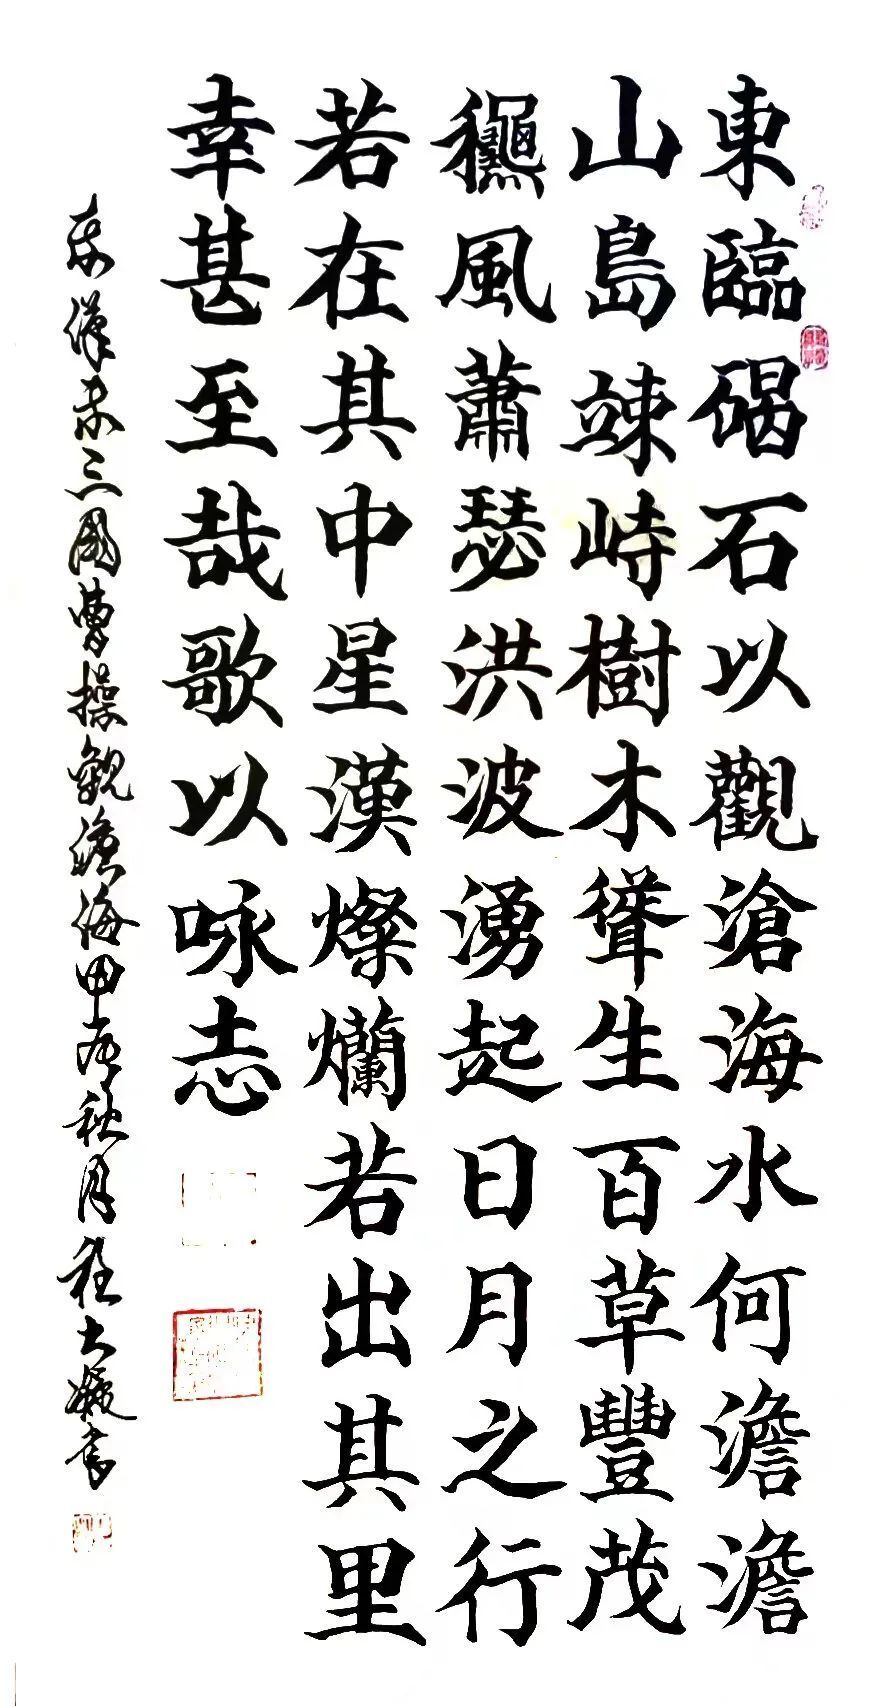 東臨碣石以觀滄海水何澹澹
山島竦峙樹木聳生百草豐茂
龝風蕭瑟洪波湧起日月之行
若在其中星漢燦爛若出其里
幸甚至哉歌以咏志
東漢末三國曹操觀滄海甲辰秋月程大凝書